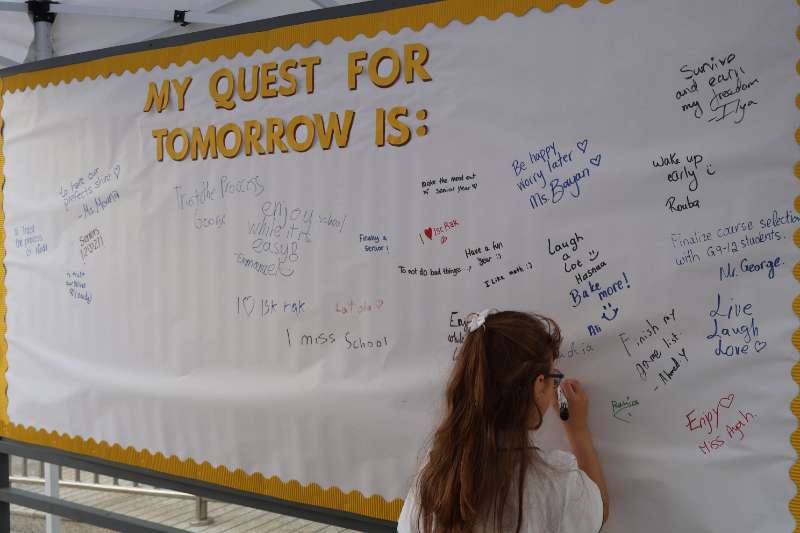 MY QUEST FOR
TOMORROW IS:
to have our
perfects shine ♡
- Ms. Mounia
Seniors
(2027)
to trust
the process
enjoy school
while it's
easy!!
I ♡ isk rak
I miss School
Finally a
senior!
make the most out
of senior year ♡
I ♥ isc Rak
Have a fun
year ☺
To not do bad things :)
I like math :)
Be happy ♡
worry later ♡
Ms. Bayan
Laugh
a
lot ☺
Hasnaa
Bake
more!
☺
Ali
Survive
and earn
my freedom
- Ilya
Wake up
early ☺
Rouba
Finalize course selection
with G9-12 students.
Mr. George.
Live
Laugh
Love ♡
Finish my
game list.
- Ahmed Y
Enjoy ♡
Miss Ayah.